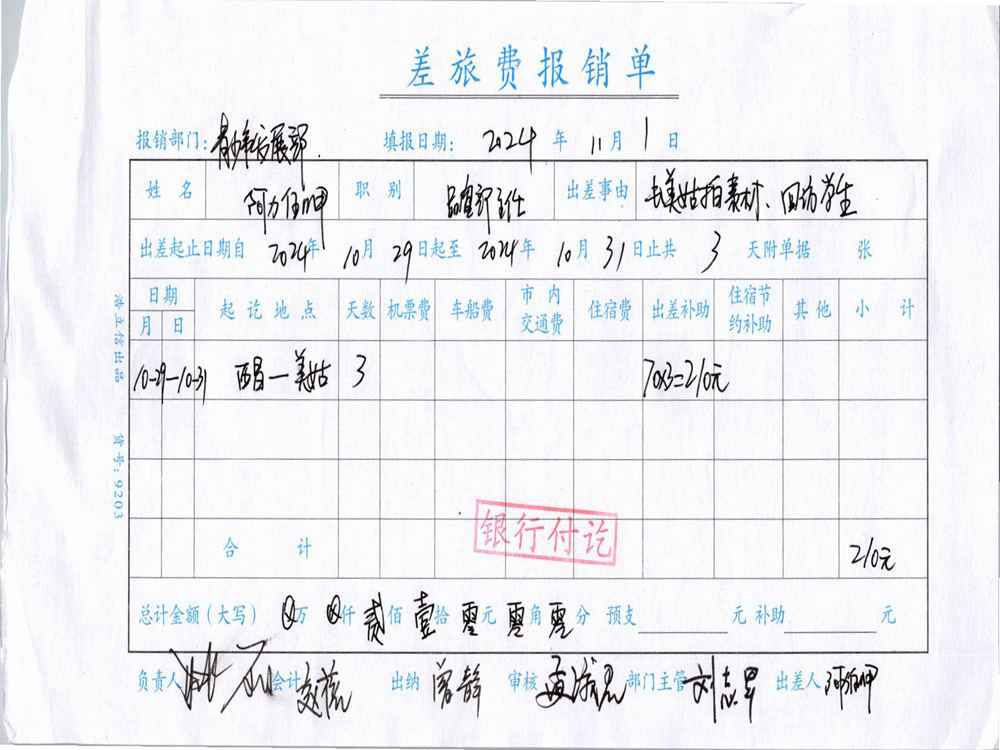 差旅费报销单
报销部门: 青少年发展部 填报日期: 2024 年 11 月 1 日
姓名 阿力伍呷 职别 品宣部主任 出差事由 去美姑拍素材、回访学生
出差起止日期自 2024年 10月 29日起至 2024年 10月 31日止共 3 天附单据 张
日期 起讫地点 天数 机票费 车船费 市内交通费 住宿费 出差补助 住宿节约补助 其他 小计
月 日
10-29—10-31 西昌—美姑 3 70x3=210元
银行付讫
合计 210元
总计金额(大写) ⊗万 ⊗仟 贰佰 壹拾 零元 零角 零分 预支 元 补助 元
负责人 会计 出纳 曾静 审核 部门主管 刘志军 出差人
货号: 9203